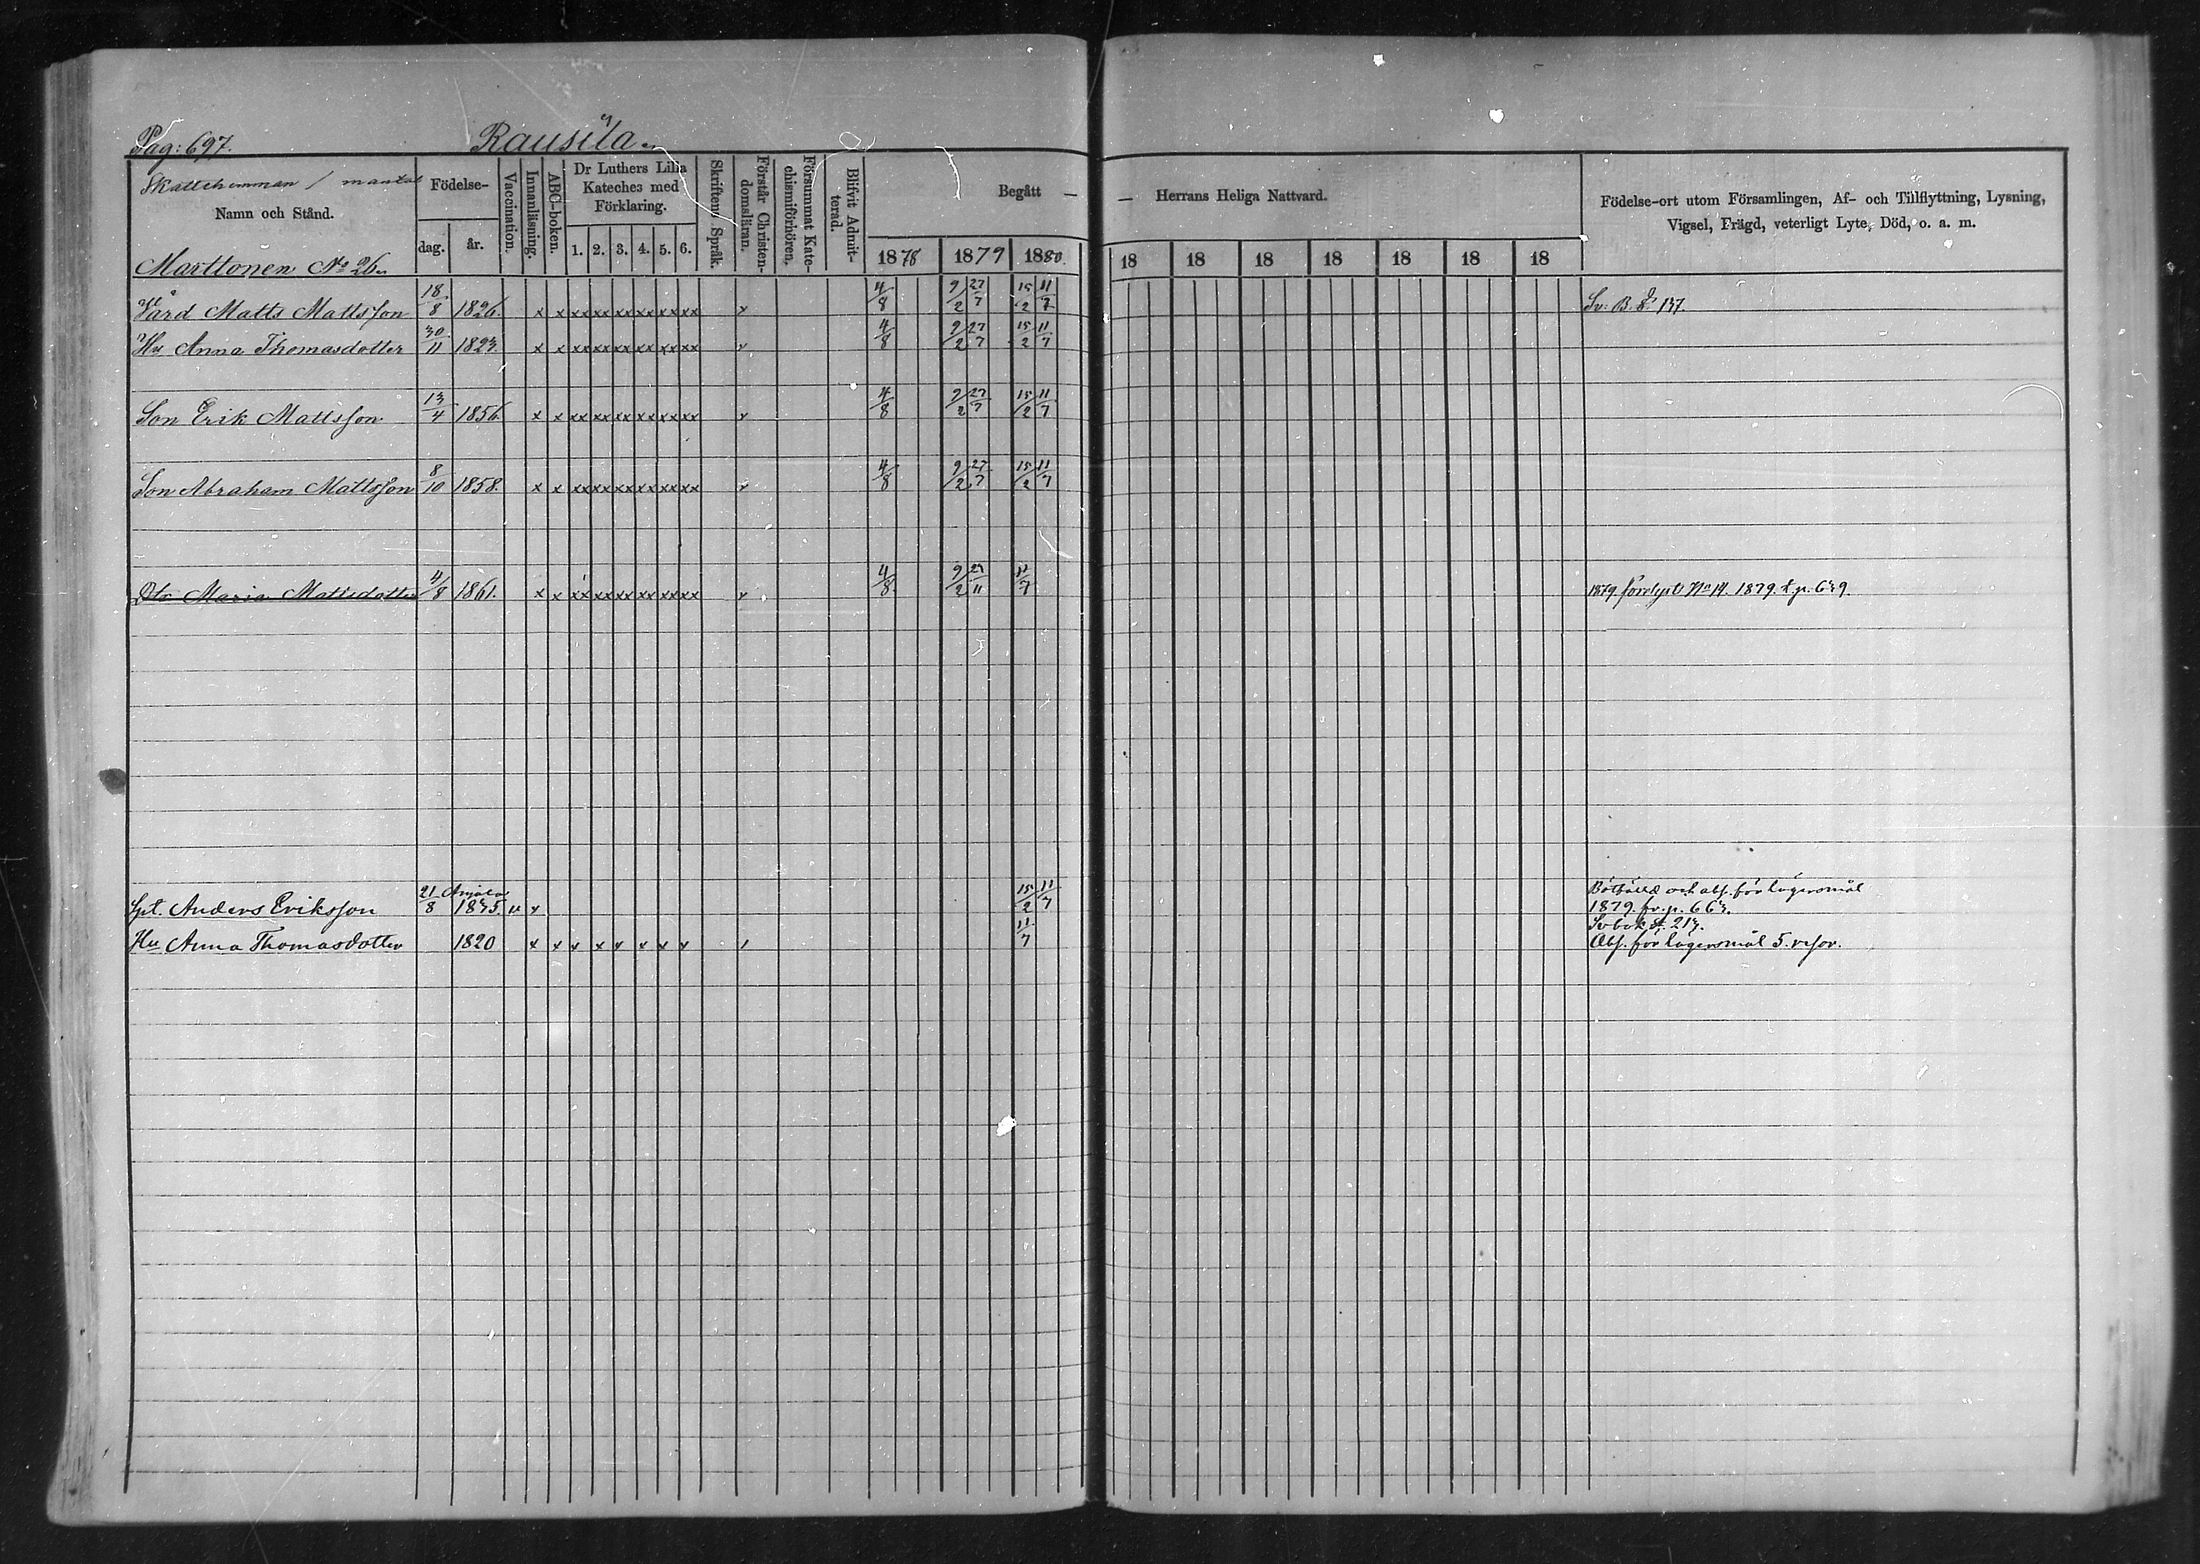 Pag: 697. Rausila
Skattehemman / mantal
Namn och Stånd.
Födelse-
dag. år.
Vaccination.
Innanläsning.
ABC-boken.
Dr Luthers Lilla
Kateches med
Förklaring.
1. 2. 3. 4. 5. 6.
Skriftens Språk.
Förstår Christen-
domsläran.
Försummat Kate-
chismiförhören.
Blifvit Admit-
terad.
Begått — — Herrans Heliga Nattvard.
1878 1879 1880 18 18 18 18 18 18 18
Födelse-ort utom Församlingen, Af- och Tillflyttning, Lysning,
Vigsel, Frägd, veterligt Lyte, Död, o. a. m.
Marttonen No 26
Värd Matts Mattsson 18/8 1826. x x xx xx xx xx xx xx x 4/8 9/2 27/7 15/2 11/7 Sv: B. 137.
Hu Anna Thomasdotter 30/11 1823. x x xx xx xx xx xx xx x 4/8 9/2 27/7 15/2 11/7
Son Erik Mattsson 13/4 1856. x x xx xx xx xx xx xx x 4/8 9/2 27/7 15/2 11/7
Son Abraham Mattsson 8/10 1858. x x xx xx xx xx xx xx x 4/8 9/2 27/7 15/2 11/7
Dtr Maria Mattsdotter 4/8 1861. x x xx xx xx xx xx xx x 4/8 9/2 27/11 11/7 1879 förelyst No 14. 1879. p. 639.
Spt. Anders Eriksson 21/8 Anjala 1835. x 15/2 11/7 Bötfälld och abs. för lägersmål
1879. fr. p. 663.
Sv bok 213.
Hu Anna Thomasdotter 1820 x x x x x x x x 11/7 Abs. för lägersmål 5. resor.